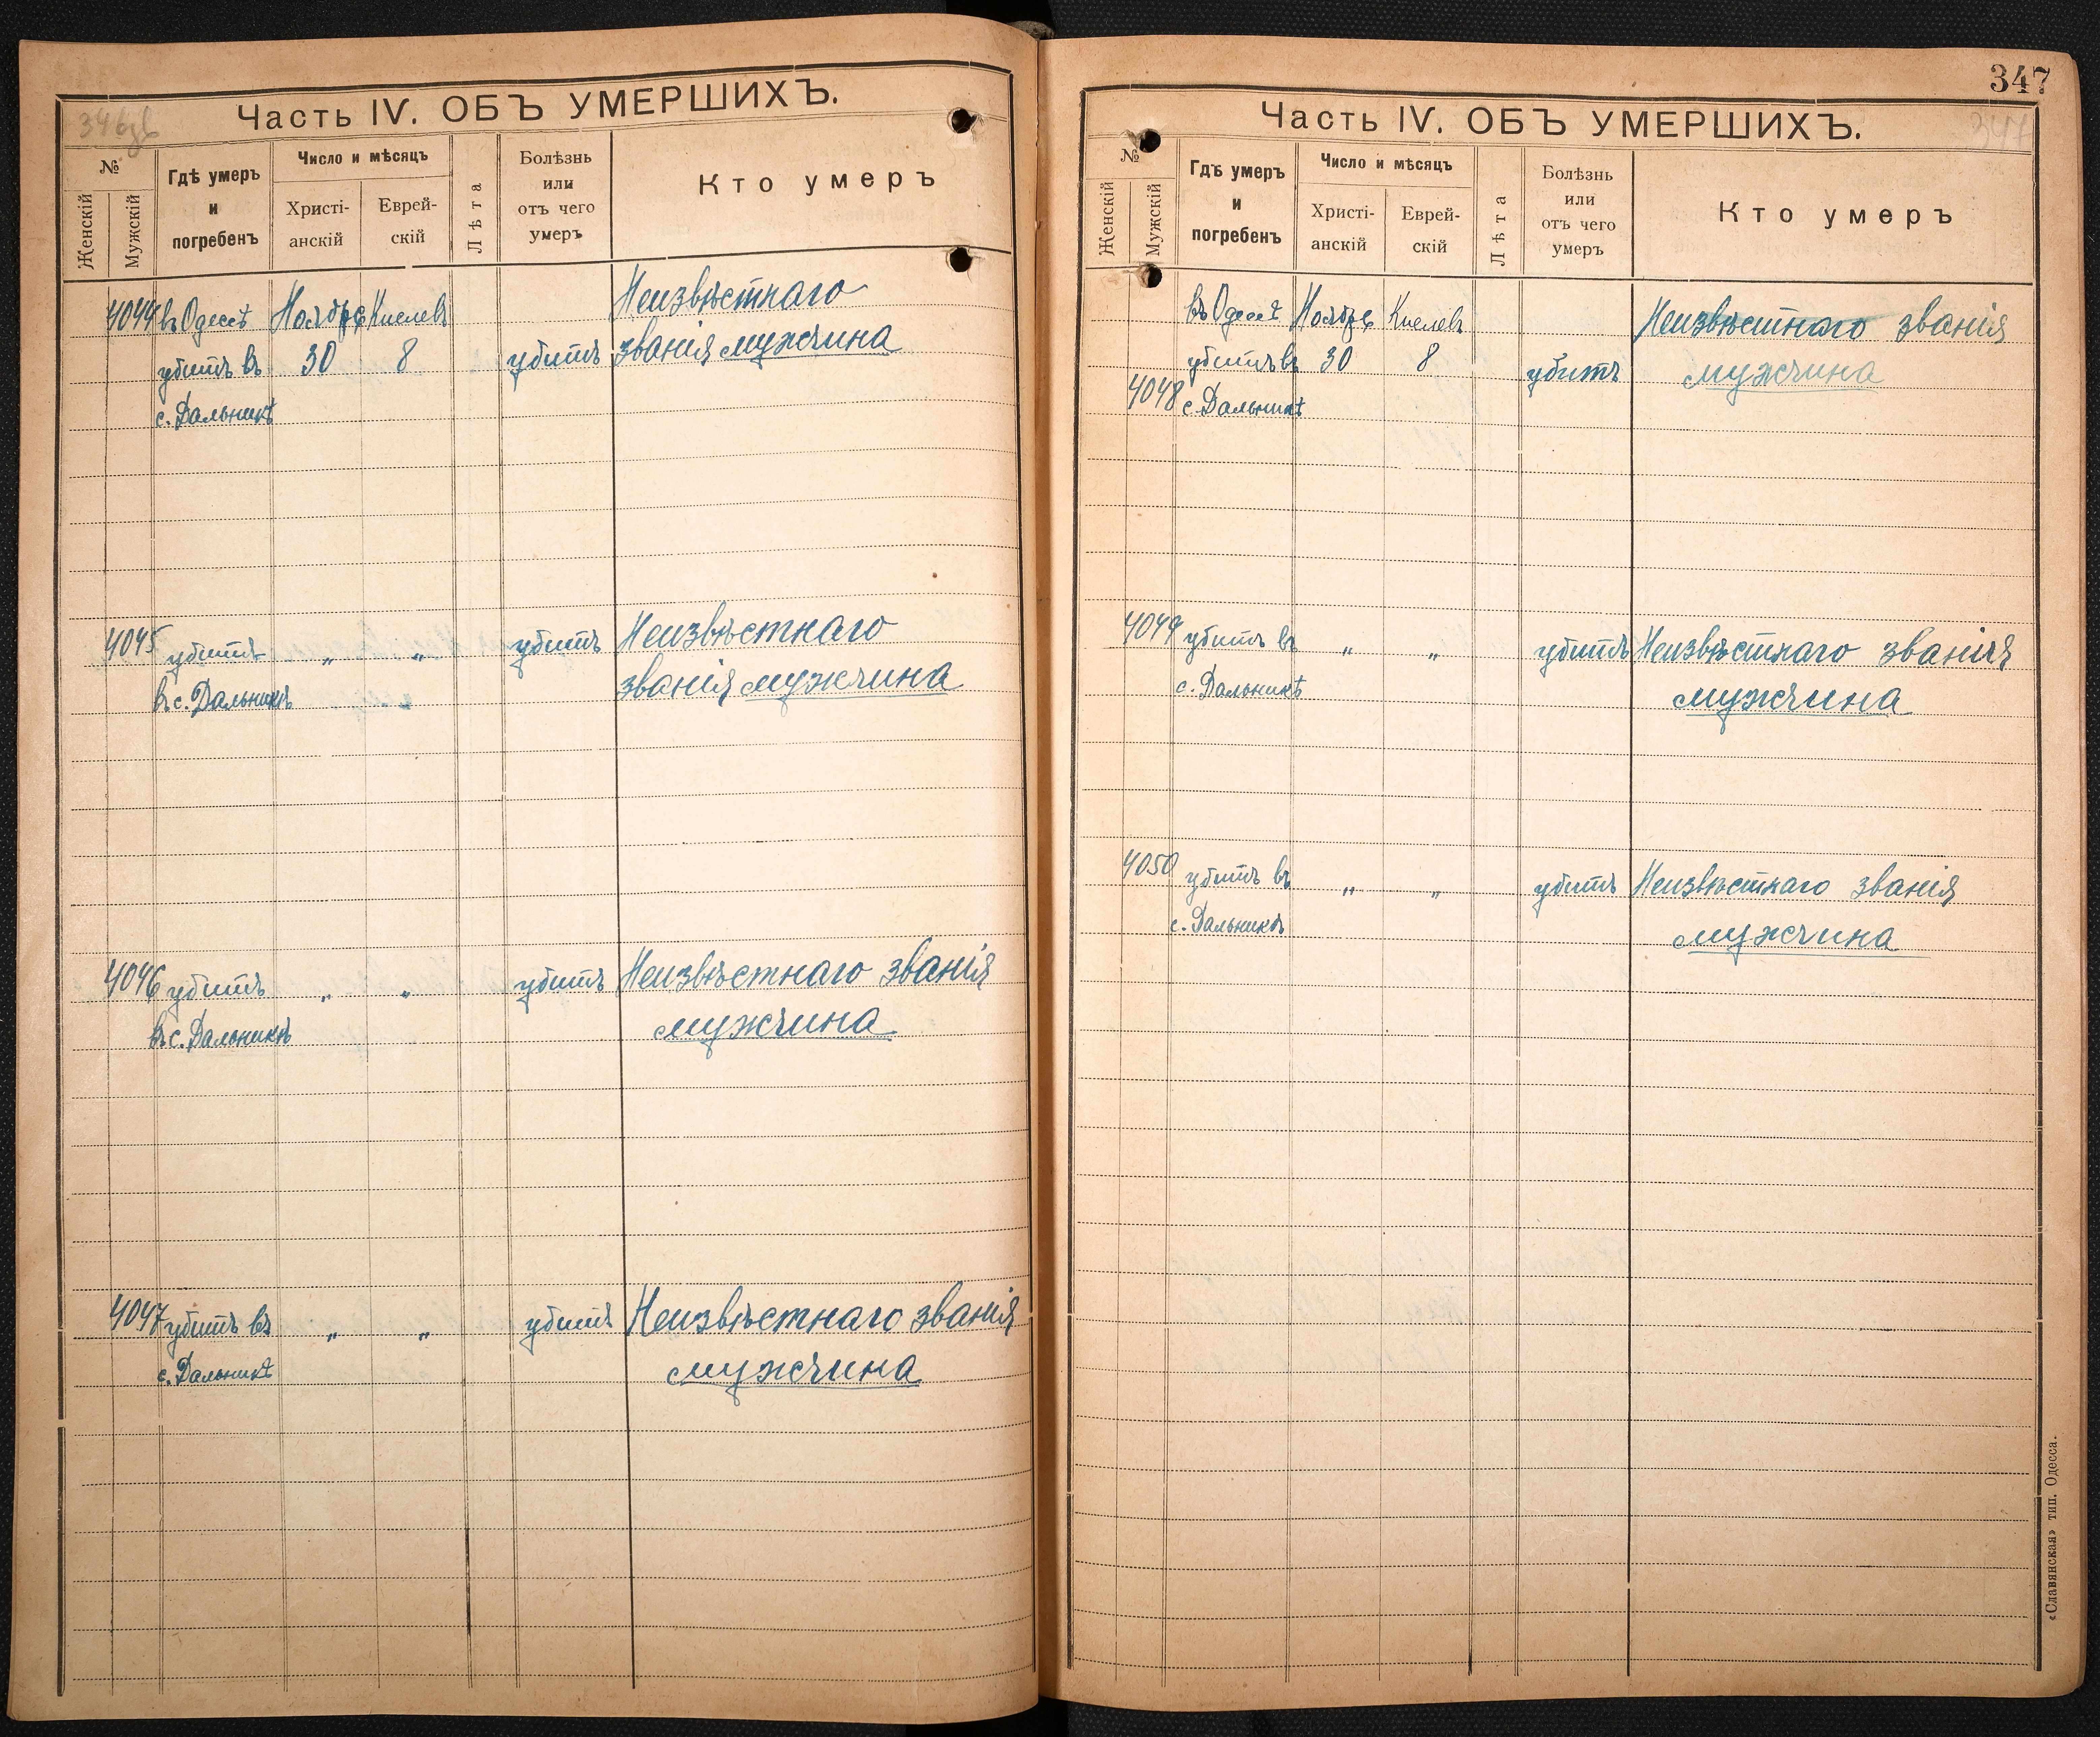 346зв
Часть IV. ОБЪ УМЕРШИХЪ.
№
Женскій
Мужскій
Гдѣ умеръ
и
погребенъ
Число и мѣсяцъ
Христі-
анскій
Еврей-
скій
Лѣта
Болѣзнь
или
отъ чего
умеръ
Кто умеръ
4044 въ Одессѣ Ноябрь Кислевъ Неизвѣстнаго
убитъ въ 30 8 убитъ званія мужчина
с. Дальникѣ
4045 убитъ „ „ убитъ Неизвѣстнаго
въ с. Дальникѣ званія мужчина
4046 убитъ „ „ убитъ Неизвѣстнаго званія
въ с. Дальникѣ мужчина
4047 убитъ въ „ „ убитъ Неизвѣстнаго званія
с. Дальникѣ мужчина
347
347
Часть IV. ОБЪ УМЕРШИХЪ.
№
Женскій
Мужскій
Гдѣ умеръ
и
погребенъ
Число и мѣсяцъ
Христі-
анскій
Еврей-
скій
Лѣта
Болѣзнь
или
отъ чего
умеръ
Кто умеръ
въ Одессѣ Ноябрь Кислевъ Неизвѣстнаго званія
убитъ въ 30 8 убитъ мужчина
4048 с. Дальникѣ
4049 убитъ въ „ „ убитъ Неизвѣстнаго званія
с. Дальникѣ мужчина
4050 убитъ въ „ „ убитъ Неизвѣстнаго званія
с. Дальникѣ мужчина
«Славянская» тип. Одесса.